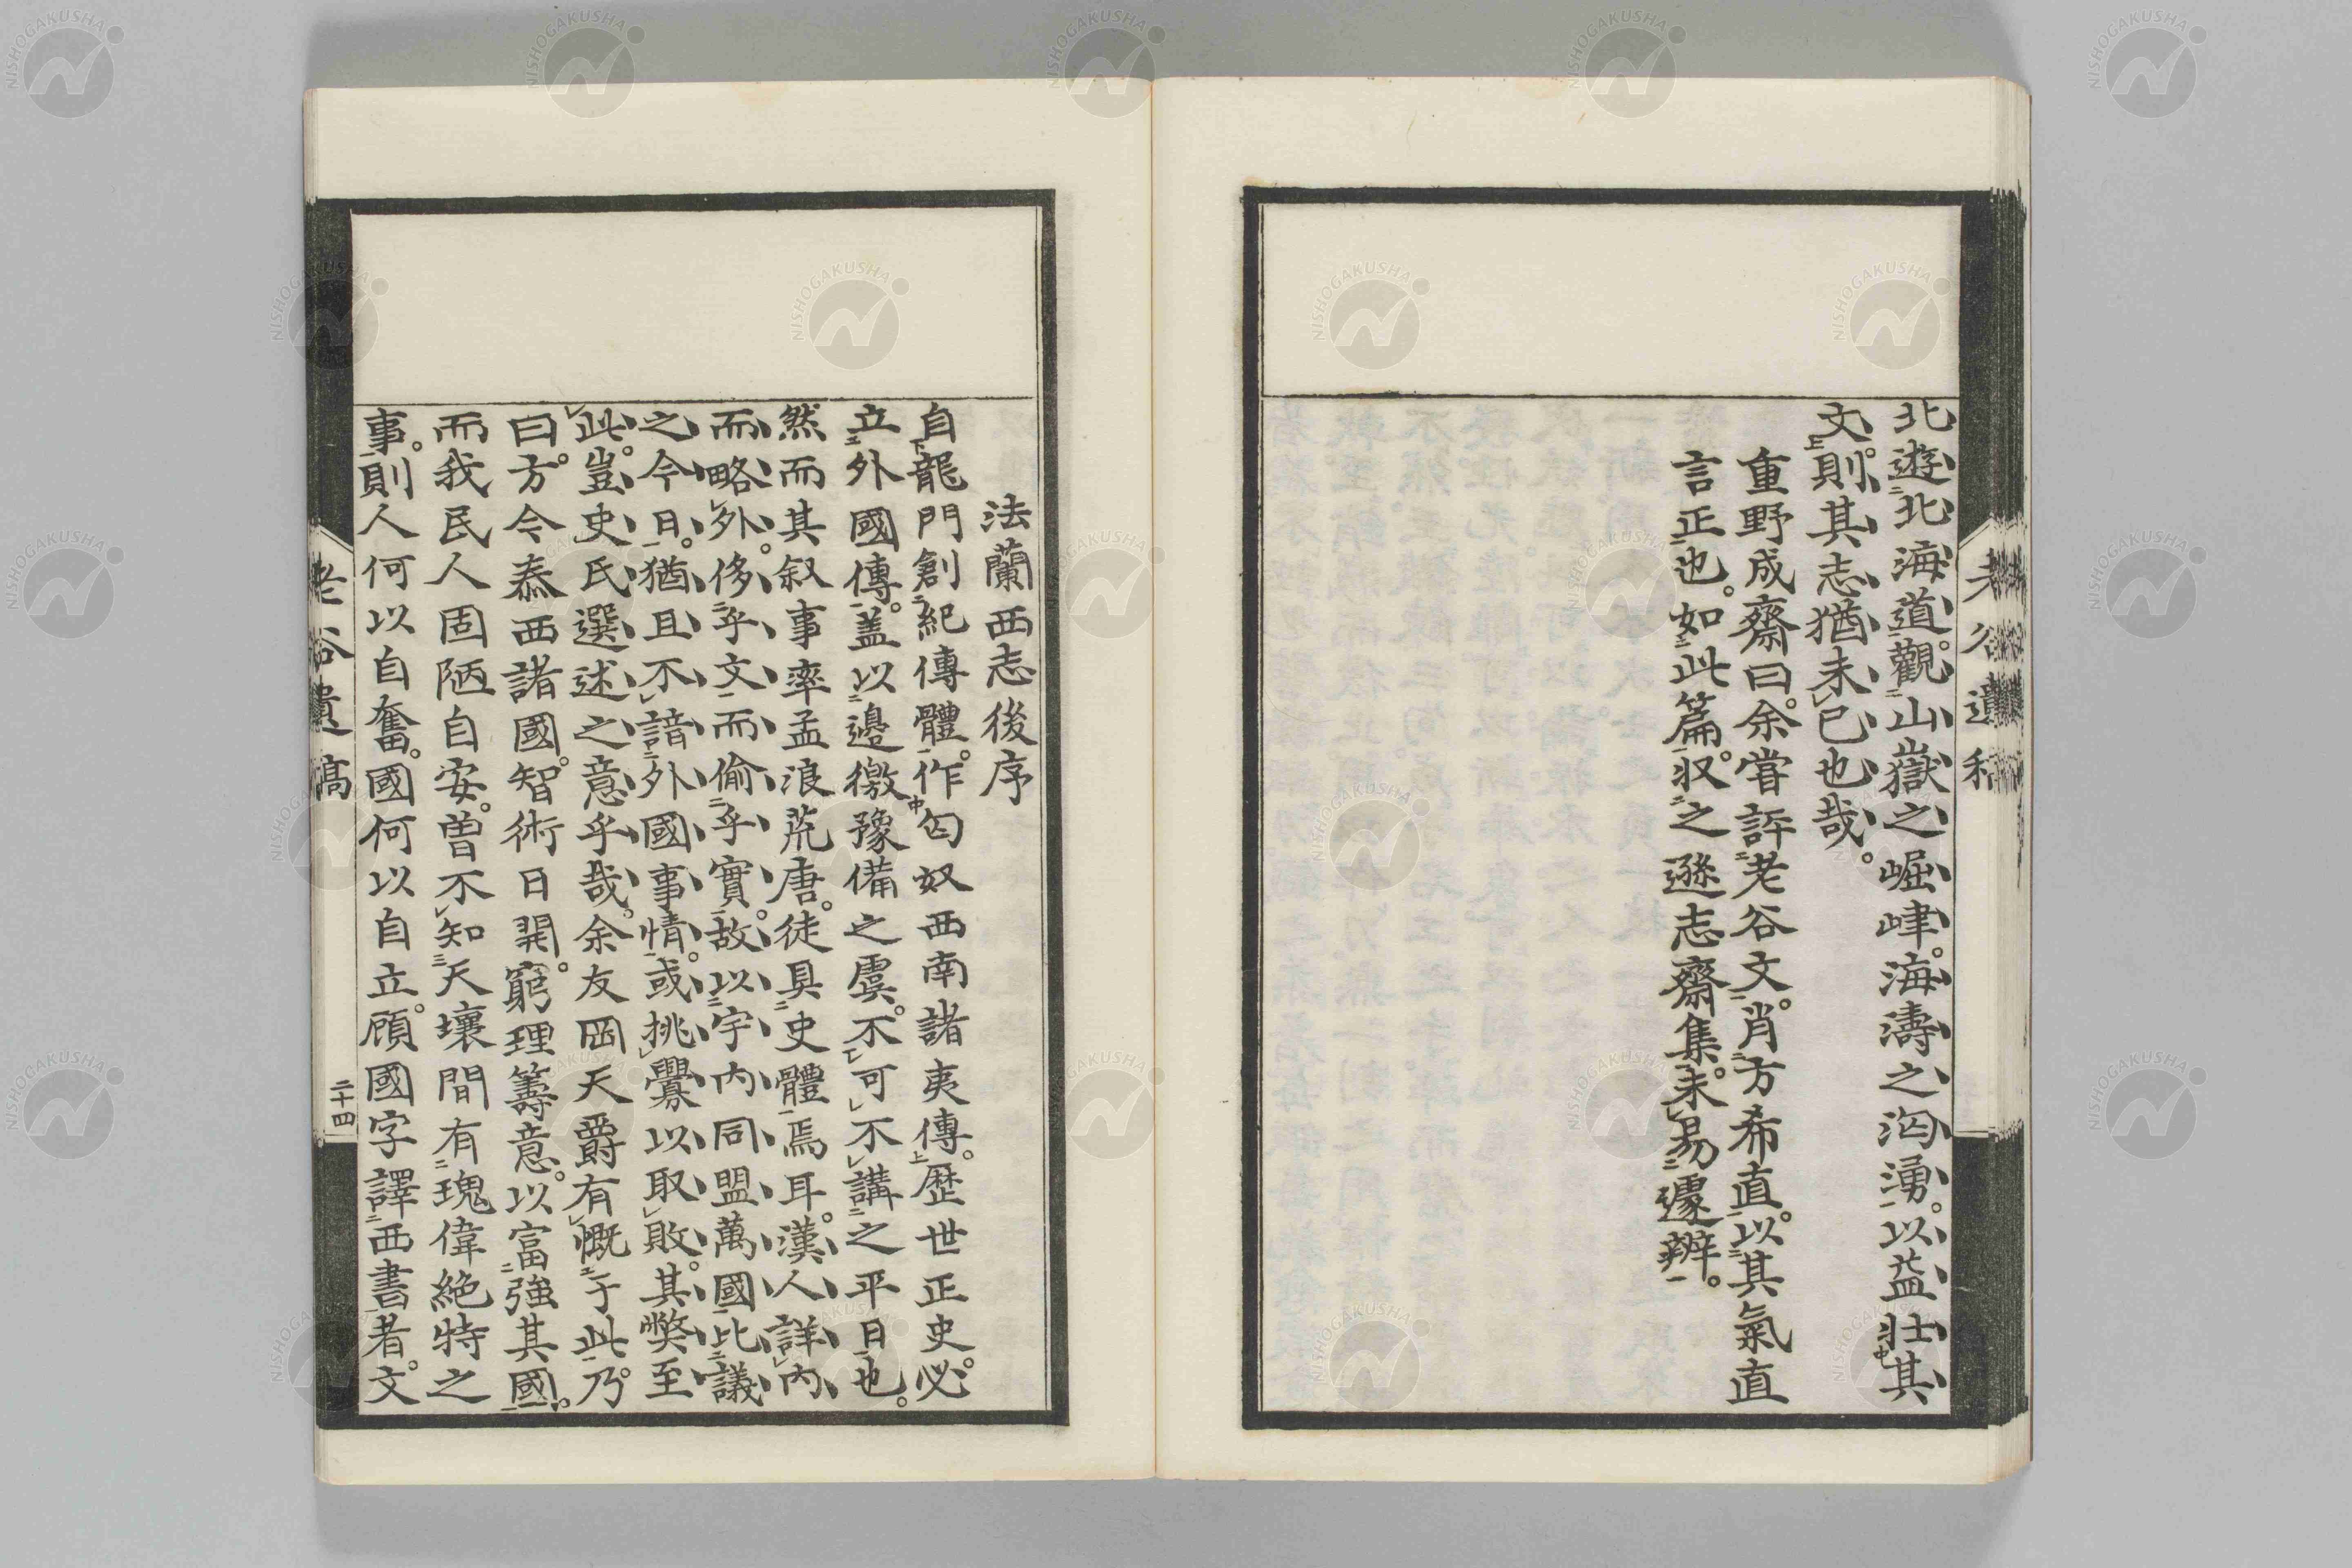 北遊北海道。觀山嶽之崛崒。海濤之洶湧。以益壯其
文。則其志猶未已也哉。
重野成齋曰。余嘗評老谷文。肖方希直。以其氣直
言正也。如此篇。収之遜志齋集。未易遽辨。
老谷遺稿
法蘭西志後序
自龍門創紀傳體。作匈奴西南諸夷傳。歴世正史。必
立外國傳。蓋以邊徼豫備之虞。不可不講之平日也。
然而其叙事率孟浪荒唐。徒具史體焉耳。漢人詳内
而略外。侈乎文而偷乎實。故以宇内同盟萬國比議
之今日。猶且不諳外國事情。或挑釁以取敗。其弊至
此。豈史氏選述之意乎哉。余友岡天爵有慨于此。乃
曰。方今泰西諸國。智術日開。窮理籌意。以富強其國。
而我民人固陋自安。曽不知天壤間有瑰偉絶特之
事。則人何以自奮。國何以自立。顧國字譯西書者。文
老谷遺稿
二十四
NISHOGAKUSHA